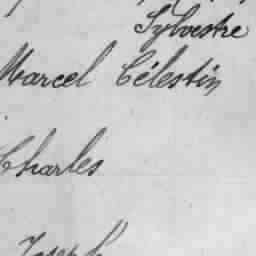 Sylvestre
Marcel Célestin
Charles
Joseph